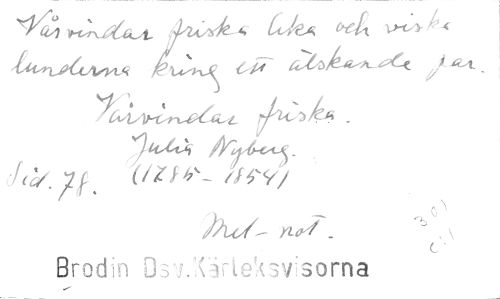 Vårvindar friska leka och viska
lunderna kring ett älskande par.
Vårvindar friska.
Julia Nyberg.
Sid. 78. (1785-1854)
Mel-not.
301
C:1
Brodin Dsv.Kärleksvisorna